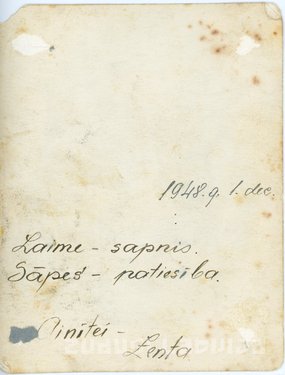 1948.g. 1. dec.
Laime - sapnis.
Sāpes - patiesība.
-
Zenta